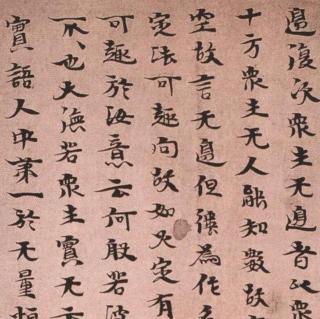 邊復次衆生无邊者以衆
十方衆生无人能知數故
空故言无邊但彊為作
定法可趣向故如火定有
可趣於汝意云何般若波
不〻也大德若衆生實无
實語人中第一於无量恒